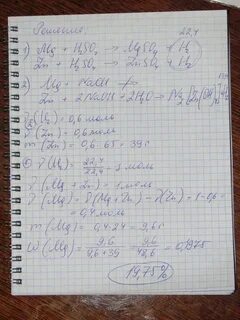 Решение:
22,4
1) Mg + H₂SO₄ → MgSO₄ + H₂
Zn + H₂SO₄ → ZnSO₄ + H₂
2) Mg + NaOH ↛
Zn + 2NaOH + 2H₂O → Na₂[Zn(OH)₄] + H₂
ν(H₂) = 0,6 моль
ν(Zn) = 0,6 моль
m = 0,6 · 65 = 39 г
ν(H₂) = 22,4/22,4 = 1 моль
ν(Mg + Zn) = 1 моль
ν(Mg) = ν(Mg + Zn) − ν(Zn) = 1 − 0,6 =
= 0,4 моль
m(Mg) = 0,4 · 24 = 9,6 г
W(Mg) = 9,6/(9,6 + 39) = 9,6/48,6 = 0,1975
19,75%